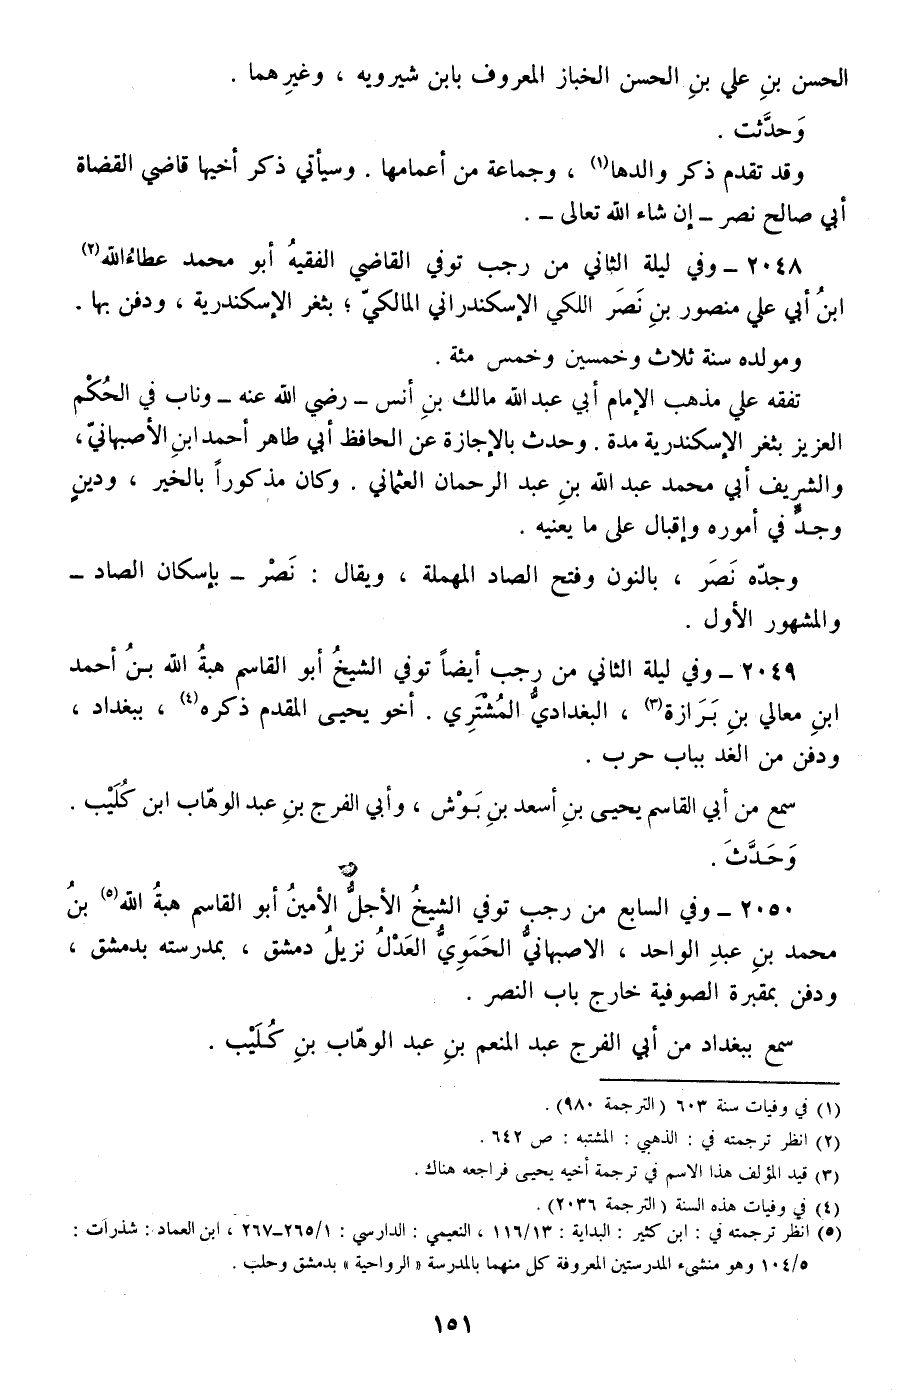 الحسن بنِ علي بنِ الحسن الخباز المعروف بابن شيرويه ، وغيرِهما .
وَحدَّثت .
وقد تقدم ذكر والدها(١) ، وجماعة من أعمامها . وسيأتي ذكر أخيها قاضي القضاة
أبي صالح نصر ــ إن شاء الله تعالى ــ .
٢٠٤٨ ــ وفي ليلة الثاني من رجب توفي القاضي الفقيهُ أبو محمد عطاءُالله(٢)
ابنُ أبي علي منصور بنِ نَصَر اللكي الإسكندراني المالكيّ ؛ بثغر الإسكندرية ، ودفن بها .
ومولده سنة ثلاث وخمسين وخمس مئة .
تفقه علي مذهب الإمام أبي عبد الله مالك بنِ أنس ــ رضي الله عنه ــ وناب في الحُكْم
العزيز بثغر الإسكندرية مدة . وحدث بالإجازة عن الحافظ أبي طاهر أحمد ابنِ الأصبهانيّ ،
والشريف أبي محمد عبد الله بنِ عبد الرحمان العثماني . وكان مذكوراً بالخير ، ودينٍ
وجدٍّ في أموره وإقبال على ما يعنيه .
وجدّه نَصَر ، بالنون وفتح الصاد المهملة ، ويقال : نَصْر ــ بإسكان الصاد ــ
والمشهور الأول .
٢٠٤٩ ــ وفي ليلة الثاني من رجب أيضاً توفي الشيخُ أبو القاسم هبةُ الله بـنُ أحمد
ابنِ معالي بنِ بَرَازة(٣) ، البغداديُّ المُشْتَرِي . أخو يحيـى المقدم ذكره(٤) ، ببغداد ،
ودفن من الغد بباب حرب .
سمع من أبي القاسم يحيـى بنِ أسعد بنِ بَـوْش ، وأبي الفرج بنِ عبد الوهّاب ابن كُلَيْب .
وَحَدَّثَ .
٢٠٥٠ ــ وفي السابع من رجب توفي الشيخُ الأجلُّ الأمينُ أبو القاسم هبةُ الله(٥) بنُ
محمد بنِ عبدِ الواحد ، الاصبهانيُّ الحَمَوِيُّ العَدْلُ نزيلُ دمشق ، بمدرسته بدمشق ،
ودفن بمقبرة الصوفية خارج باب النصر .
سمع ببغداد من أبي الفرج عبد المنعم بنِ عبد الوهّاب بنِ كُـلَيْب .
(١) في وفيات سنة ٦٠٣ (الترجمة ٩٨٠) .
(٢) انظر ترجمته في : الذهبي : المشتبه : ص ٦٤٢ .
(٣) قيد المؤلف هذا الاسم في ترجمة أخيه يحيـى فراجعه هناك .
(٤) في وفيات هذه السنة (الترجمة ٢٠٣٦) .
(٥) انظر ترجمته في : ابن كثير : البداية : ١١٦/١٣ ، النعيمي : الدارسي : ٢٦٥/١ــ٢٦٧ ، ابن العماد : شذرات :
١٠٤/٥ وهو منشىء المدرستين المعروفة كل منهما بالمدرسة « الرواحية » بدمشق وحلب .
١٥١